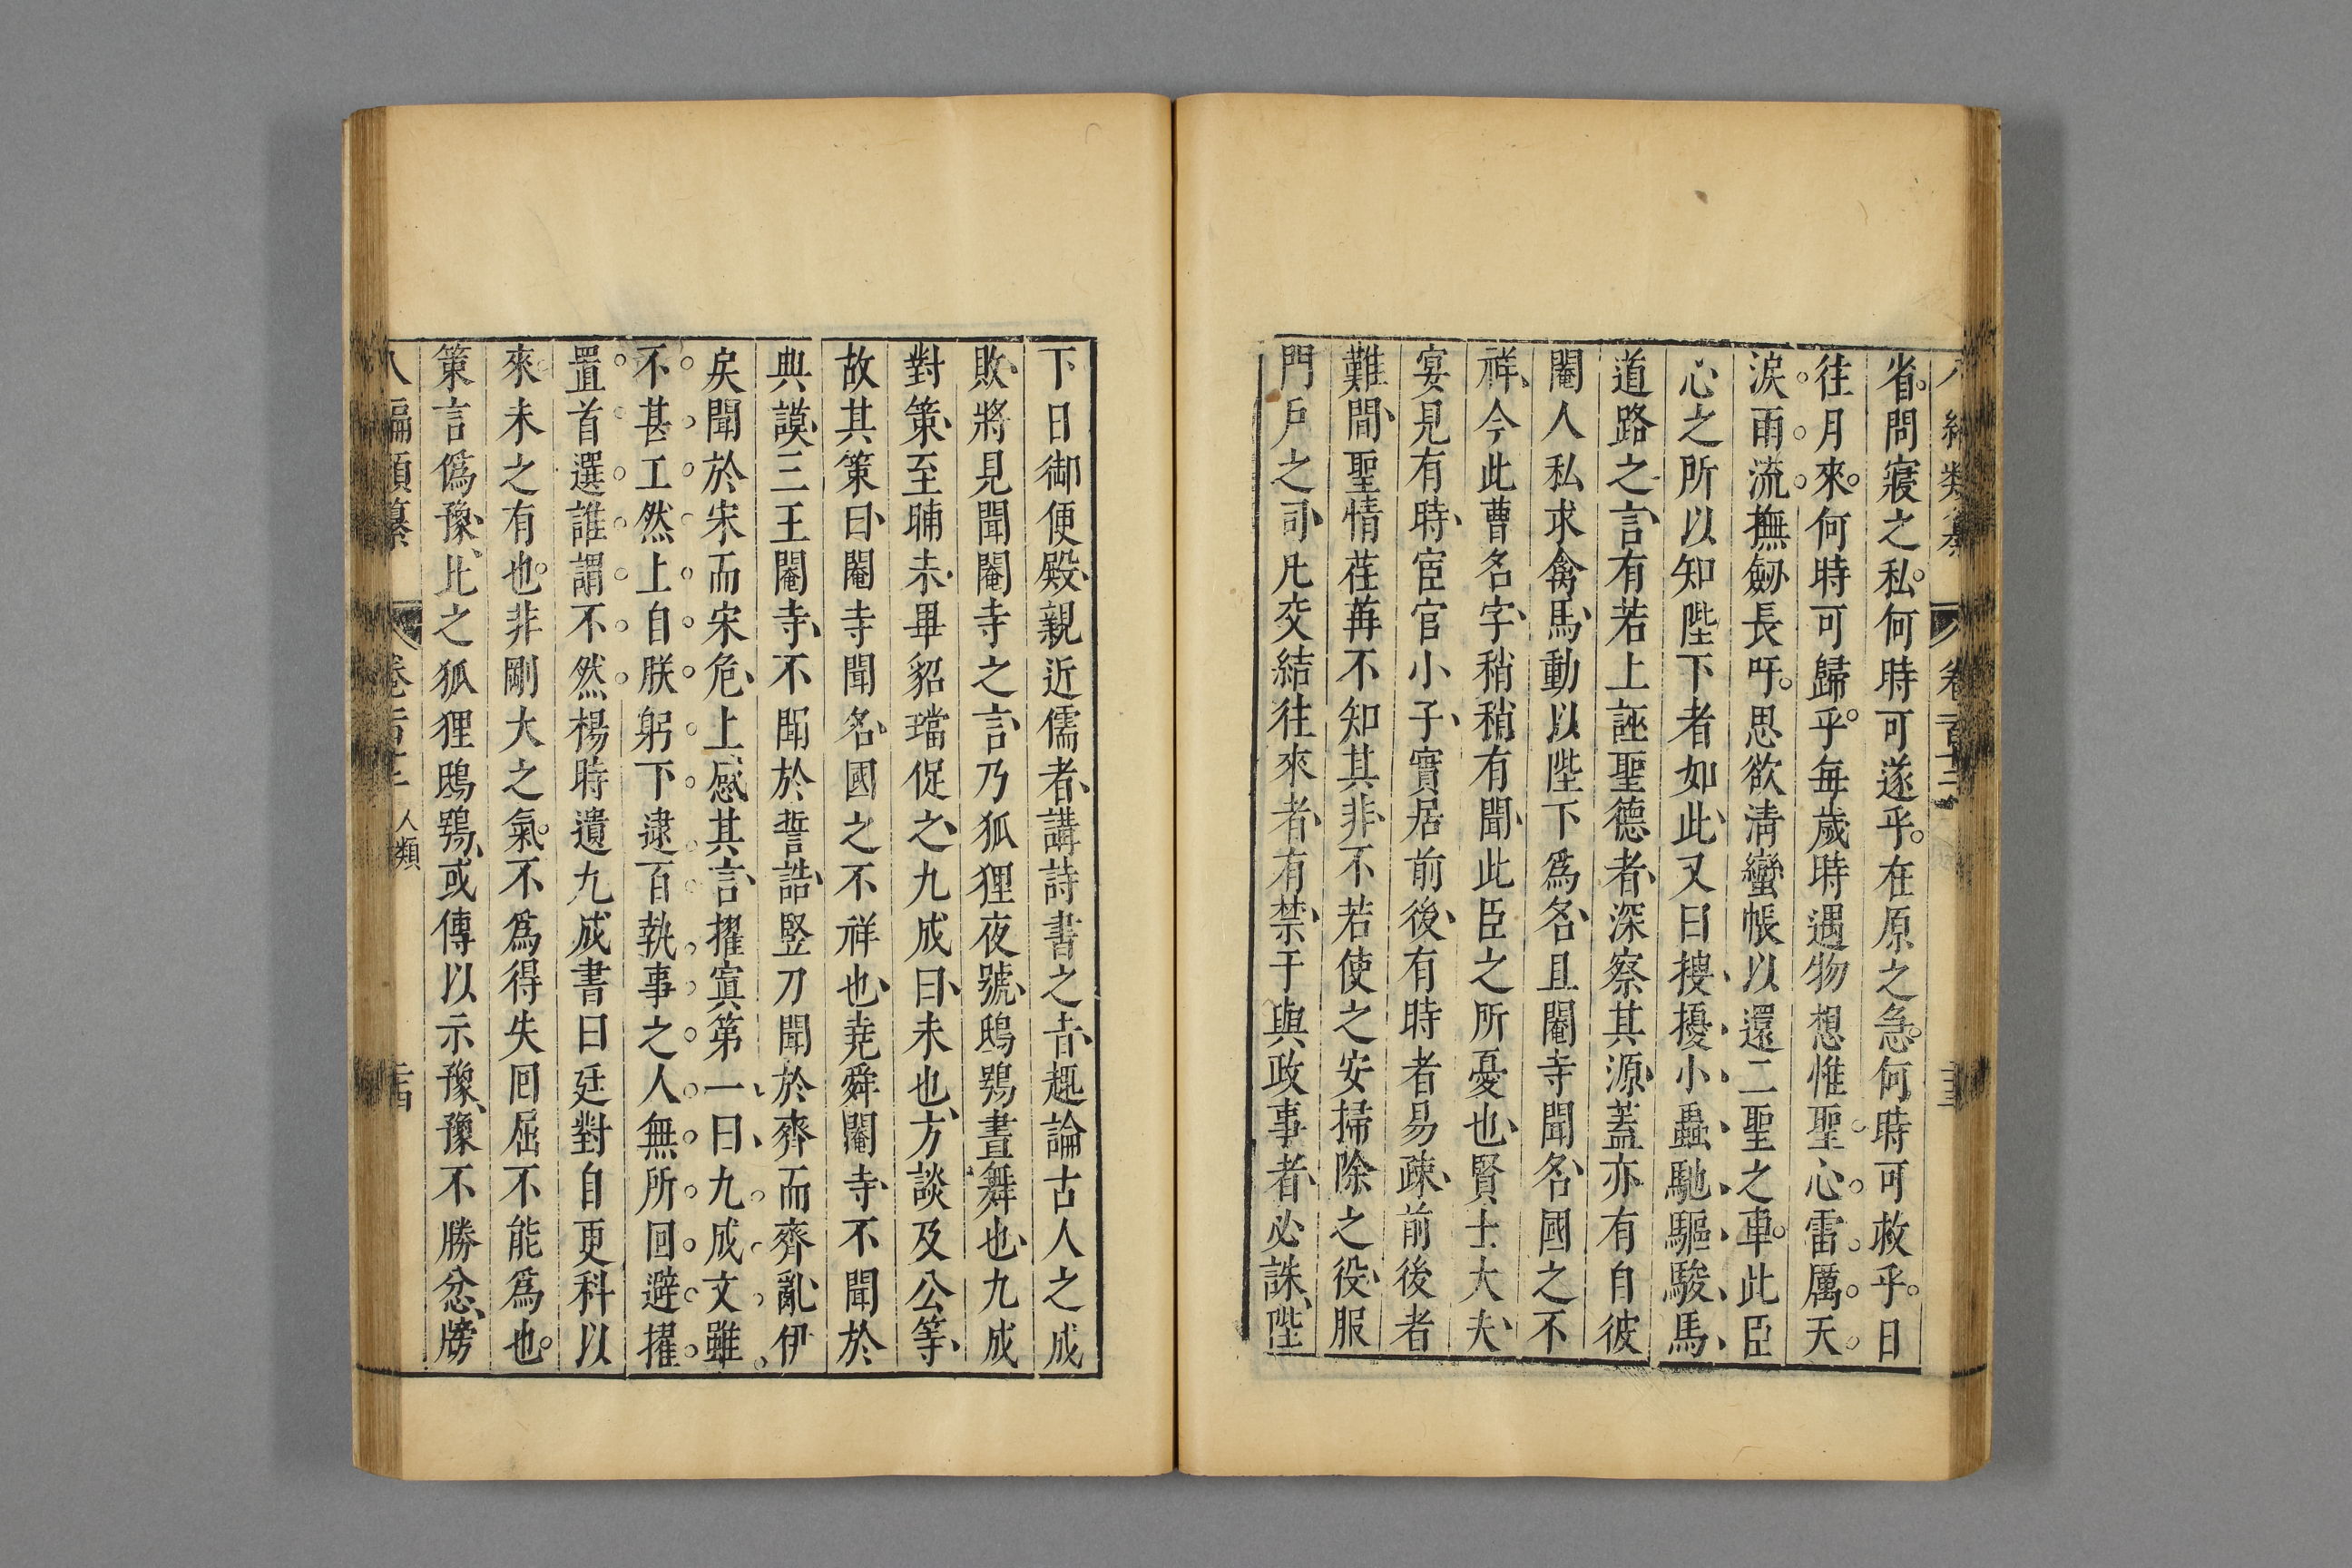 省問寢之私何時可遂乎在原之急何時可救乎日
往月來何時可歸乎毎歲時遇物想惟聖心雷厲天
淚雨流撫劒長吁思欲淸蠻帳以還二聖之車此臣
心之所以知陛下者如此又曰搜擾小蟲馳驅駿馬
道路之言有若上誣聖德者深察其源蓋亦有自彼
閹人私求禽馬動以陛下爲名且閹寺聞名國之不
祥今此曹名字稍稍有聞此臣之所憂也賢士大夫
宴見有時宦官小子實居前後有時者易疎前後者
難間聖情荏苒不知其非不若使之安掃除之役服
門戶之司凡交結往來者有禁干與政事者必誅陛
下日御便殿親近儒者講詩書之㫖趣論古人之成
敗將見聞閹寺之言乃狐狸夜號鴟鴞晝舞也九成
對策至晡未畢貂璫促之九成曰未也方談及公等
故其策曰閹寺聞名國之不祥也堯舜閹寺不聞於
典謨三王閹寺不聞於誓誥竪刀聞於齊而齊亂伊
戾聞於宋而宋危上感其言擢寘第一曰九成文雖
不甚工然上自朕躬下逮百執事之人無所回避擢
置首選誰謂不然楊時遺九成書曰廷對自更科以
來未之有也非剛大之氣不爲得失回屈不能爲也
策言僞豫比之狐狸鴟鴞或傳以示豫豫不勝忿牓
八編類纂 卷百十二 人類